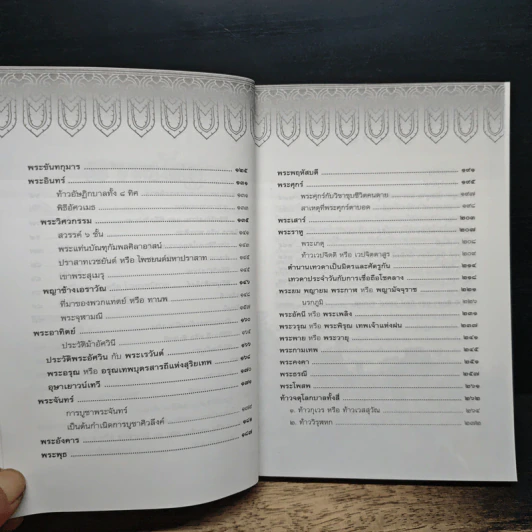 พระขันทกุมาร ๑๒๕
พระอินทร์ ๑๓๑
ท้าวอัษฎิกบาลทั้ง ๘ ทิศ
พิธีอัศวเมธ
พระวิศวกรรม ๑๓๕
สวรรค์ ๖ ชั้น
พระแท่นบัณฑุกัมพลศิลาอาสน์
ปราสาทเวชยันต์ หรือ ไพชยนต์มหาปราสาท
เขาพระสุเมรุ
พญาช้างเอราวัณ
ที่มาของพวกแทตย์ หรือ ทานพ
พระจุฬามณี
พระอาทิตย์ ๑๖๐
ประวัติม้าอัศวินี
ประวัติพระอัศวิน กับ พระเรวันต์
พระอรุณ หรือ อรุณเทพบุตรสารถีแห่งสุริยเทพ
อุษาเยาวน์เทวี
พระจันทร์
การบูชาพระจันทร์
เป็นต้นกำเนิดการบูชาศิวลึงค์
พระอังคาร
พระพุธ ๑๘๗
พระพฤหัสบดี ๑๙๑
พระศุกร์ ๑๙๕
พระศุกร์กับวิชาชุบชีวิตคนตาย
สาเหตุที่พระศุกร์ตาบอด ๑๙๘
พระเสาร์ ๒๐๓
พระราหู ๒๐๗
พระเกตุ ๒๐๘
ท้าวเวปจิตติ หรือ เวปจิตตาสูร
ตำนานเทวดาเป็นมิตรและศัตรูกัน
เทวดาประจำวันกับการเชื่อถือโชคลาง ๒๑๘
พระยม พญายม พระกาฬ หรือ พญามัจจุราช ๒๒๑
นรกภูมิ
พระอัคนี หรือ พระเพลิง
พระวรุณ หรือ พระพิรุณ เทพเจ้าแห่งฝน ๒๓๗
พระพาย หรือ พระวายุ ๒๔๑
พระกามเทพ ๒๔๕
พระคงคา ๒๕๑
พระธรณี ๒๕๗
พระโพสพ ๒๖๑
ท้าวจตุโลกบาลทั้งสี่ ๒๖๒
๑. ท้าวกุเวร หรือ ท้าวเวสสุวัณ ๒๖๔
๒. ท้าววิรุฬหก ๒๗๒